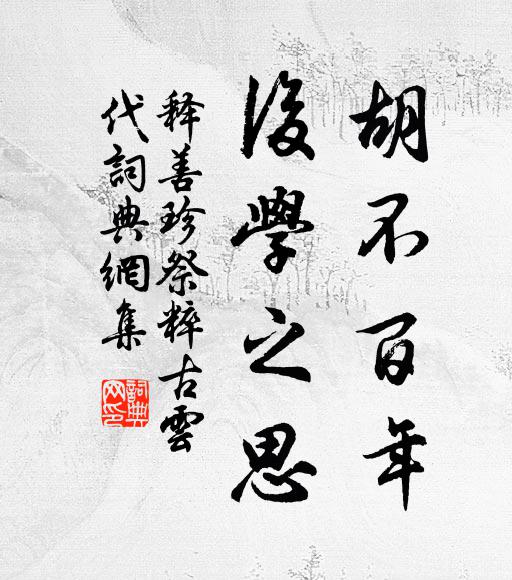 胡不百年
後學之思
释善珍祭粹古雲
代詞典網集
詞典網印